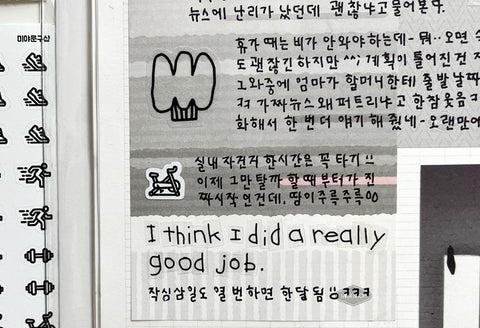 미야문구산
뉴스에 난리가 났던데 괜찮냐고 물어본다.
휴가 때는 비가 안와야하는데- 뭐.. 오면
도 괜찮긴하지만 ^^; 계획이 틀어진 것 지
그와중에 엄마가 할머니한테 출발 날짜
ㅋㅋ 가짜뉴스 왜 퍼트리냐고 한참 웃음ㅋ
화해서 한 번 더 얘기 해 줬네- 오랜만에
실내 자전거 한시간은 꼭 타기 !!
이제 그만탈까 할 때 부터가 진
짜시작인건데. 땀이 주륵주륵
I think I did a really
good job.
작심삼일도 열 번하면 한달 됨!! ㅋㅋㅋ